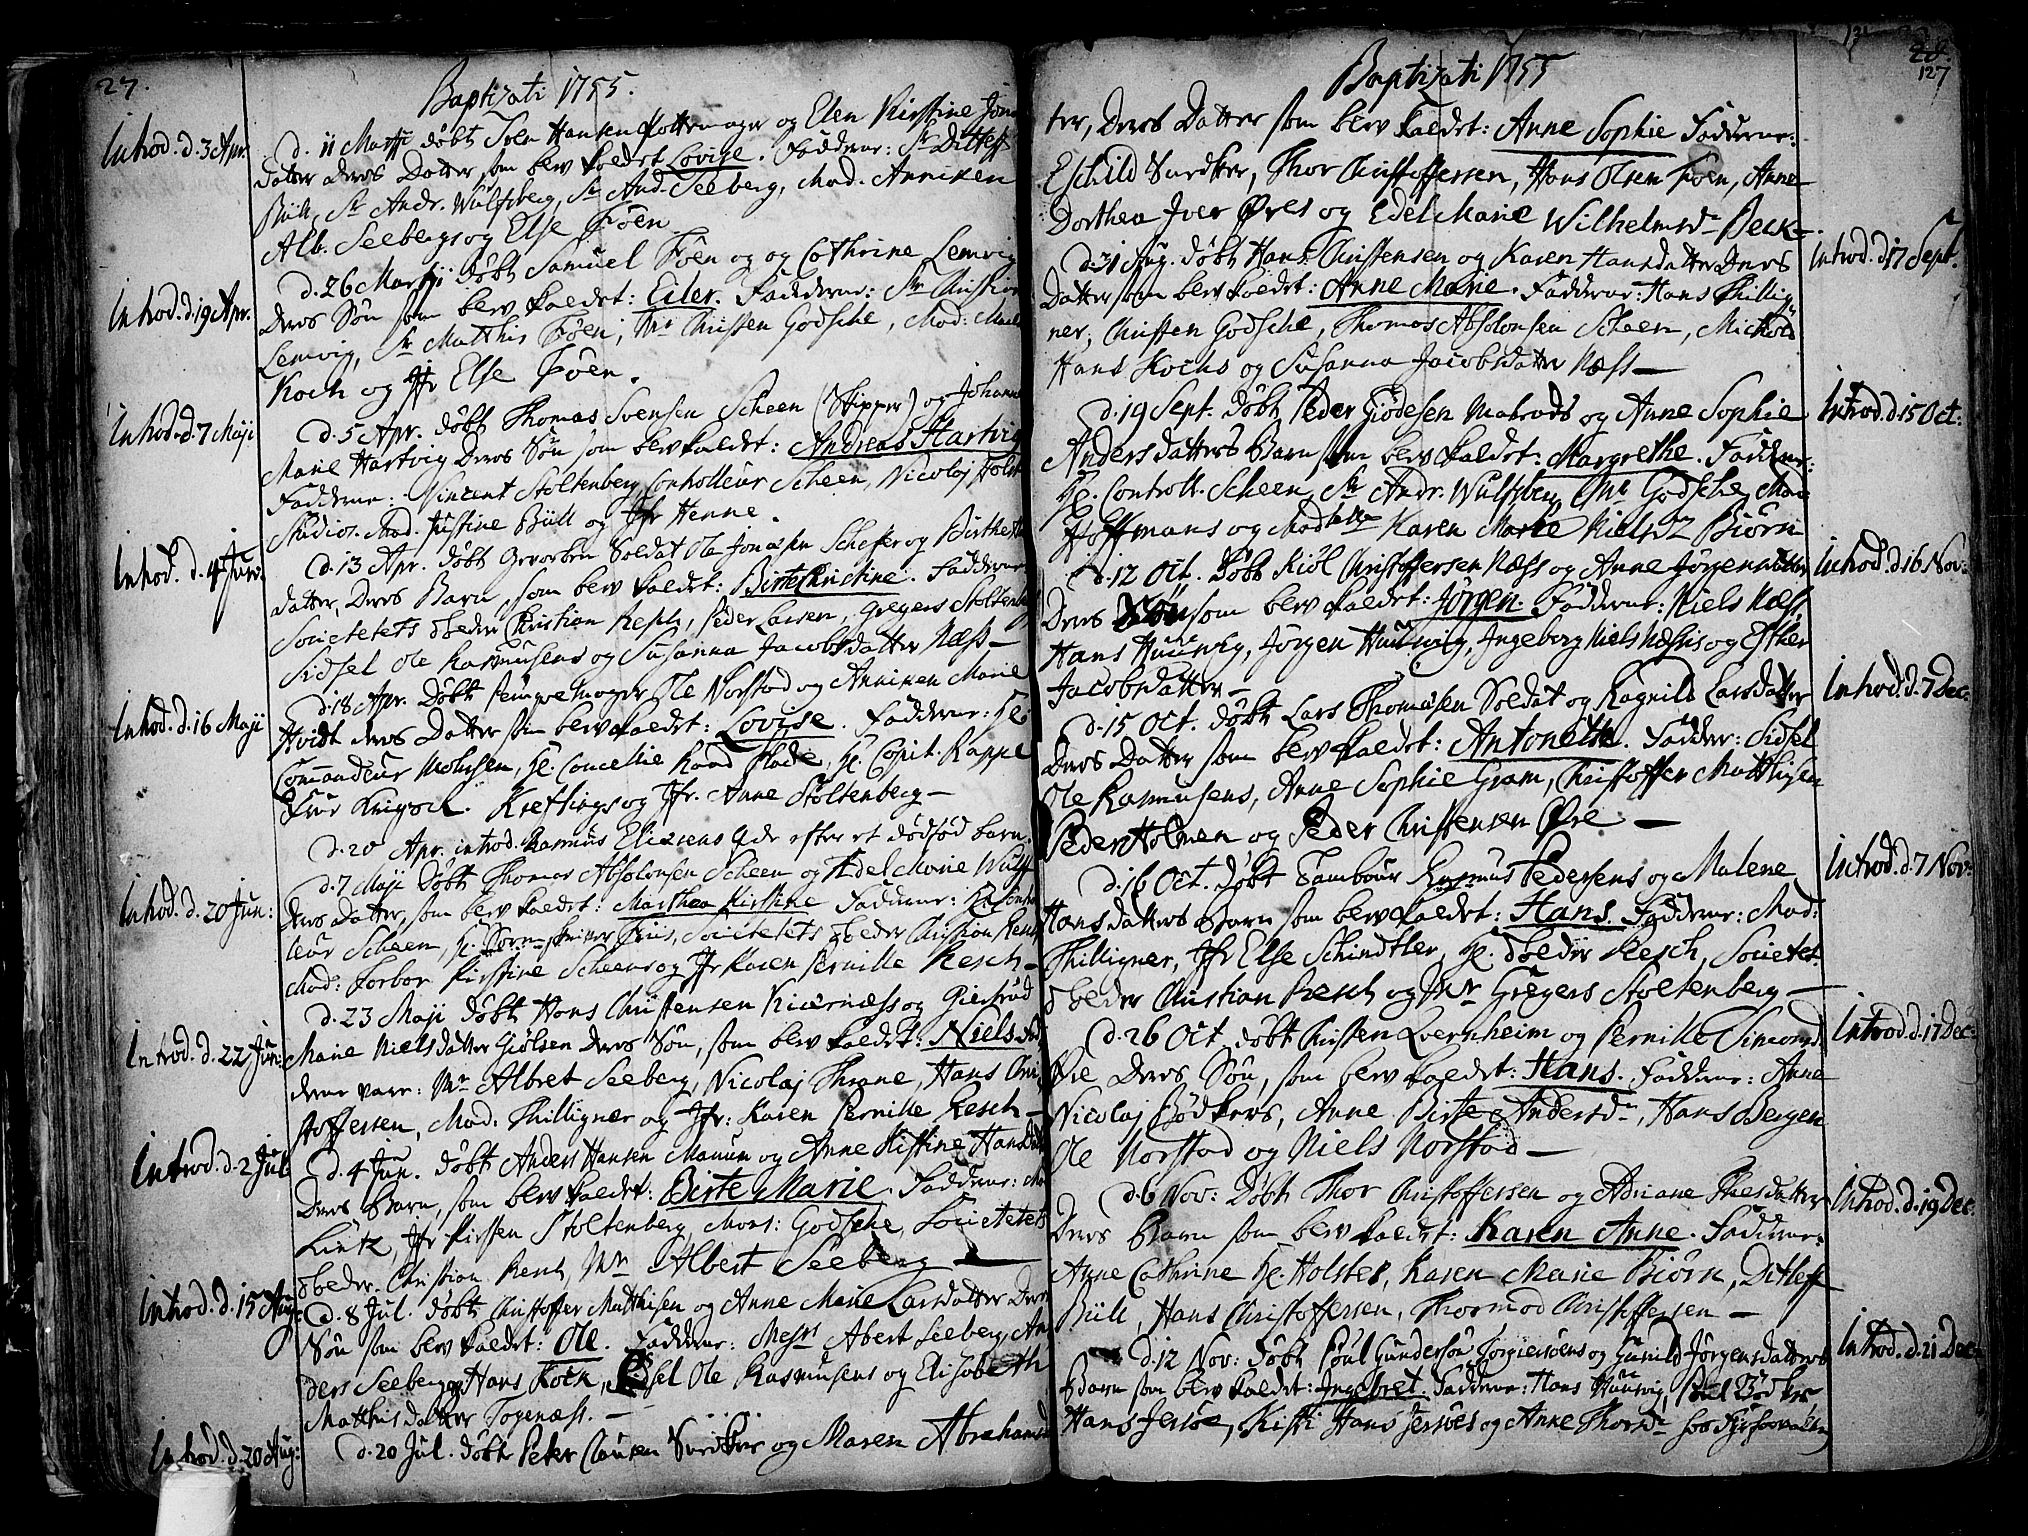 27.
Baptizati 1755.
Introd. d. 3 Apr.
d. 11 Martji döbt Soen Hansen Pottemager og Elen Kirstine Jons
datter deres Datter som blev kaldet Lovise. Fadderne: Sr Ditlef
Büll, Sr Andr. Wulfsberg, Sr And. Seeberg, Mad. Anniken
Alb. Seebergs og Else Föen.
Introd. d. 19 Apr.
d. 26 Martji döbt Samuel Föen og og Cathrine Lemvig
deres Sön som blev kaldet: Eiler. Fadderne: Sr Christian
Lemvig, Sr Matthis Föen, Mr Christen Godsche, Mad:
Koch og Jfr Else Föen.
Introd. d. 7 Maji
d. 5 Apr. döbt Thomas Svensen Scheen (Skipper) og Johanne
Marie Hartvig deres Sön som blev kaldet: Andreas Hartvig
Fadderne: Vincent Stoltenberg Controlleur Scheen, Nicolaj Holst
Studios. Mad. Justine Büll og Jfr Henne.
Introd. d. 4 Jun.
d. 13 Apr. döbt Gevorben Soldat Ole Jonasen Schefer og Birthe
datter, deres Barn, som blev kaldet: Birte Kirstine. Fadderne
Societetets Christian Resch, Peder Larsen, Gregers Stoltenberg
Sidsel Ole Rasmusens og Susanna Jacobsdatter Næss—
Introd. d. 16 Maji
d. 18 Apr. döbt Ole Norstad og Anniken Marie
Hvidt deres Datter som blev kaldet: Lovise. Fadderne: Hr
Commandeur Mohrsen, Hr. Cancellie Raad Flade, Hr. Capit. Rappe
Kreftings og Jfr. Anne Stoltenberg—
d. 20 Apr. introd. Rasmus Eliæsens Qde efter et dödföd barn.
Introd. d. 20 Jun:
d. 7 Maji döbt Thomas Absolonsen Scheen og Edel Marie Wulf
deres datter, som blev kaldet: Marthea Kirstine Fadderne: Hr.
leur Scheen, Hr. Sorenskriver Friis, Societetets Christian Resch
Mad: Barbar Kirstine Scheens og Jfr Karen Pernille Resch—
Introd. d. 22 Jun:
d. 23 Maji döbt Hans Christensen Kiærnæss og Giertrud
Marie Nielsdatter Giölsen deres Sön, som blev kaldet: Niels Fad
derne vare: Mr Albret Seeberg, Nicolaj Thrane, Hans Chri
stoffersen, Mad. Thilligner og Jfr: Karen Pernille Resch—
Introd. d. 2 Jul.
d. 4 Jun. döbt Anders Hansen Manum og Anne Kistine Hansdat
deres Barn, som blev kaldet: Birte Marie. Fadderne:
Lintz, Jfr Kirsten Stoltenberg, Mons: Godsche, Societetets
Christian Resch, Mr Albert Seeberg—
Introd. d. 15 Aug:
d. 8 Jul. döbt Christoffer Matthisen og Anne Marie Larsdatter deres
Sön som blev kaldet: Ole. Fadderne: Messrs Abert Seeberg, An
ders Seeberg og Hans Koch, Sidsel Ole Rasmusens og Elisabeth
Matthisdatter Togenæss.—
Introd. d. 20 Aug:
d. 20 Jul. döbt Peter Clausen Snedker og Maren Abrahamsd
28.
127
Baptizati 1755
ter, deres Datter som blev kaldet: Anne Sophie Fadderne:
Eschild Snedker, Thor Christoffersen, Hans Olsen Föen, Anne
Dorthea Iver Öres og Edel Marie Wilhelmsdr Beck—
Introd. d 17 Sept.
d. 31 Aug. döbt Hans Christensen og Karen Hansdatter deres
Datter som blev kaldet: Anne Marie. Fadderne: Hans Thillig
ner, Christen Godsche, Thomas Absolonsen Scheen,
Hans Kochs og Susanna Jacobsdatter Næss—
Introd. d. 15 Oct:
d. 19 Sept. döbt Peder Giödesen Matrods og Anne Sophie
Andersdatters Barn som blev kaldet: Margrethe. Fadderne:
Hr. Controll. Scheen, Sr Andr. Wulfsberg, Mr Godsche, Mad
Hoffmans og Madlle Karen Marie Nielsdr Biörn
Introd. d. 16 Nov:
d. 12 Oct. döbt Kiöl Christoffersen Næss og Anne Jörgensdatter
deres Sön som blev kaldet: Jörgen. Fadderne: Niels Næss
Hans Huusvig, Jörgen Huusvig, Ingeborg Niels Næsses og Esther
Jacobsdatter—
Introd. d. 7 Dec:
d. 15 Oct. döbt Lars Thomasen Soldat og Ragnild Larsdatter
deres Datter som blev kaldet: Antonette. Fadder: Sidsel
Ole Rasmusens, Anne Sophie Gram, Christoffer Matthisen
Peder Holmen og Peder Christensen Öre—
Introd. d. 7 Nov:
d. 16 Oct. döbt Tambour Rasmus Pedersens og Malene
Hansdatters Barn som blev kaldet: Hans. Fadderne: Mad:
Thilligner, Jfr Else Schindtler, Hr. Resch, Societet.
Christian Resch og Mr Gregers Stoltenberg—
Introd. d. 17 Dec:
d. 26 Oct. döbt Christen Loernheim og Pernille Simonsd
deres Sön, som blev kaldet: Hans. Fadderne: Anne
Nicolaj Bödkers, Anne Birte Andersdr, Hans Bergen
Ole Norstad og Niels Norstad—
Introd. d. 19 Dec:
d. 6 Nov: döbt Thor Christoffersen og Adriane Thesdatter
deres Barn som blev kaldet: Karen Anne. Fadderne:
Anne Cathrine Hr. Holstes, Karen Marie Biörn, Ditleff
Büll, Hans Christoffersen, Thormod Christoffersen—
Introd. d. 21 Dec:
d. 12 Nov: döbt Poul Gundersön og Gunild Jörgensdatters
Barn som blev kaldet: Ingebret. Fadderne: Hans Huusvig, Poul Bödker
Hans Jersöe, Kisti Hans Jersöes og Anne Thorsdr